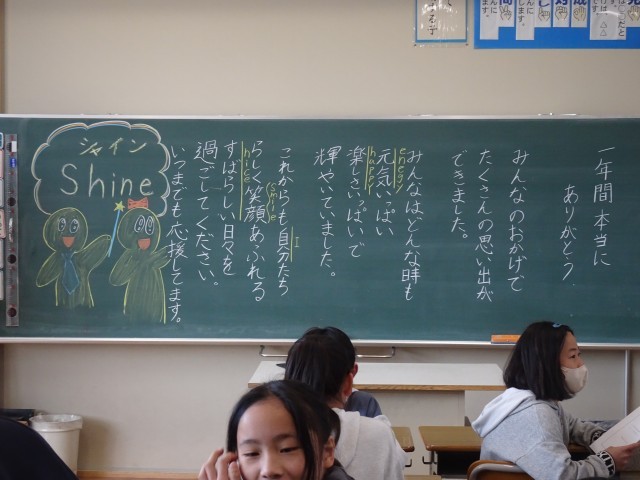 一年間本当に
ありがとう
みんなのおかげで
たくさんの思い出が
できました。
みんなはどんな時も
energy
元気いっぱい
happy
楽しさいっぱいで
輝やいていました。
これからも自分たち
I
smile
らしく笑顔あふれる
nice
すばらしい日々を
過ごしてください。
いつまでも応援してます。
シャイン
Shine